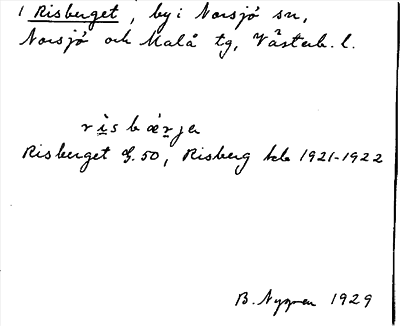 1 Risberget, by i Norsjö sn,
Norsjö och Malå tg, Västerb. l.
rìsbárja
Risberget G. 50, Risberg kb 1921-1922
B. Nygren 1929